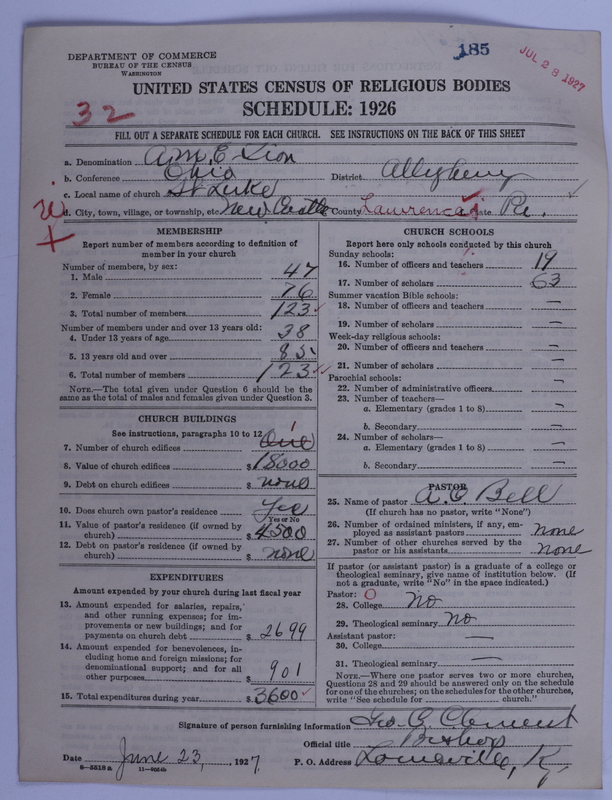 185
JUL 28 1927
DEPARTMENT OF COMMERCE
BUREAU OF THE CENSUS
WASHINGTON
UNITED STATES CENSUS OF RELIGIOUS BODIES
32
SCHEDULE: 1926
FILL OUT A SEPARATE SCHEDULE FOR EACH CHURCH. SEE INSTRUCTIONS ON THE BACK OF THIS SHEET
a. Denomination A.M.E. Zion
b. Conference Ohio District Allegheny
c. Local name of church St Luke
d. City, town, village, or township, etc. New Castle County Lawrence State Pa.
MEMBERSHIP
Report number of members according to definition of
member in your church
Number of members, by sex:
1. Male 47
2. Female 76
3. Total number of members 123
Number of members under and over 13 years old:
4. Under 13 years of age 38
5. 13 years old and over 85
6. Total number of members 123
NOTE.—The total given under Question 6 should be the
same as the total of males and females given under Question 3.
CHURCH BUILDINGS
See instructions, paragraphs 10 to 12
7. Number of church edifices One 1
8. Value of church edifices $ 18000
9. Debt on church edifices $ none
10. Does church own pastor's residence Yes
Yes or No
11. Value of pastor's residence (if owned by
church) $ 4500
12. Debt on pastor's residence (if owned by
church) $ none
EXPENDITURES
Amount expended by your church during last fiscal year
13. Amount expended for salaries, repairs,
and other running expenses; for im-
provements or new buildings; and for
payments on church debt $ 2699
14. Amount expended for benevolences, in-
cluding home and foreign missions; for
denominational support; and for all
other purposes $ 901
15. Total expenditures during year $ 3600
CHURCH SCHOOLS
Report here only schools conducted by this church
Sunday schools:
16. Number of officers and teachers 19
17. Number of scholars 63
Summer vacation Bible schools:
18. Number of officers and teachers —
19. Number of scholars —
Week-day religious schools:
20. Number of officers and teachers —
21. Number of scholars —
Parochial schools:
22. Number of administrative officers —
23. Number of teachers—
a. Elementary (grades 1 to 8) —
b. Secondary —
24. Number of scholars—
a. Elementary (grades 1 to 8) —
b. Secondary —
PASTOR
25. Name of pastor A. C. Bell
(If church has no pastor, write "None")
26. Number of ordained ministers, if any, em-
ployed as assistant pastors none
27. Number of other churches served by the
pastor or his assistants none
If pastor (or assistant pastor) is a graduate of a college or
theological seminary, give name of institution below. (If
not a graduate, write "No" in the space indicated.)
Pastor: O
28. College No
29. Theological seminary No
Assistant pastor:
30. College —
31. Theological seminary —
NOTE.—Where one pastor serves two or more churches,
Questions 28 and 29 should be answered only on the schedule
for one of the churches; on the schedules for the other churches,
write "See schedule for church."
Signature of person furnishing information Geo. C. Clement
Official title Bishop
Date June 23, 1927. P. O. Address Louisville, Ky
8—5518a 11—9024b